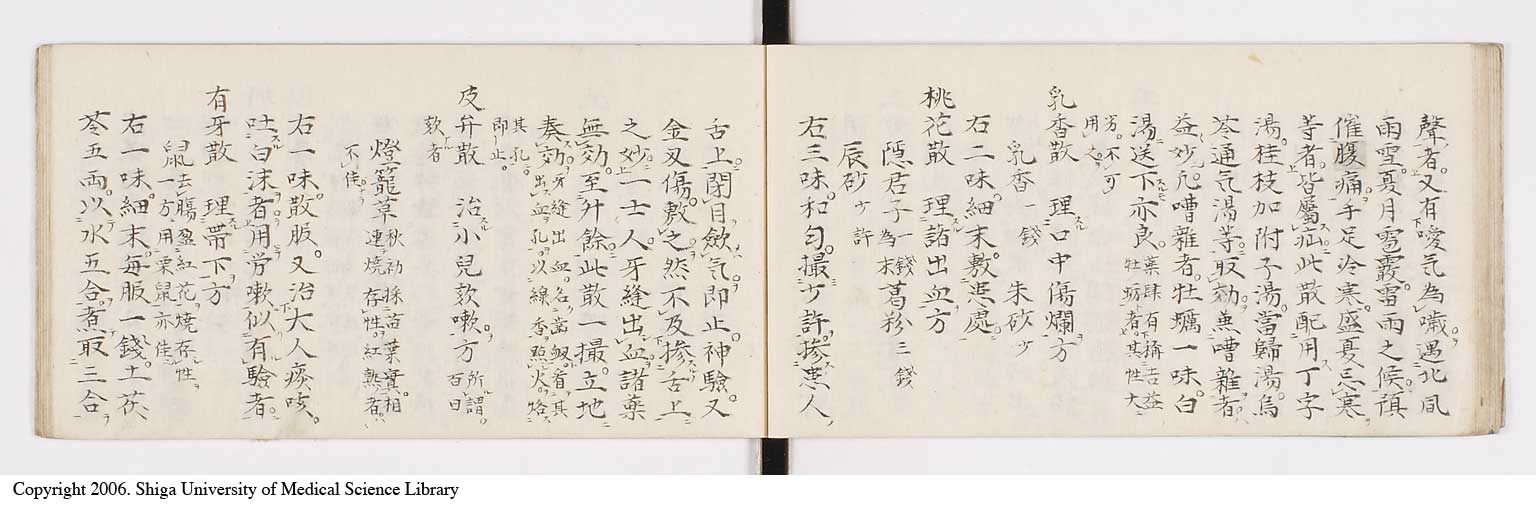 聲者。又有噯気為噦。遇北風
雨雪。夏月雹霰。雷雨之候。預
催腹痛。手足冷寒。盛夏忌寒
等者。皆屬疝。此散配用丁字
湯。桂枝加附子湯。當歸湯。烏
苓通気湯等。取効。無嘈雜者
益妙。凢嘈雜者。牡蠣一味。白
湯送下亦良。
葉肆有稱吉益
牡蛎者。其性大
劣。不可
用之。
乳香散　理口中傷爛方
乳香一錢　朱砂少
右二味細末。敷患處。
桃花散　理諸出血方
隠君子一錢為末　葛粉三錢
辰砂少許
右三味。和匀。撮少許。摻患人
舌上。閉目斂気。即止。神驗。又
金刄傷敷之。然不及摻舌上
之妙。一士人。牙縫出血。諸藥
無効。至升餘。此散一撮。立地
奏効。
牙縫出血。名齒衂。看其
出血孔。以線香点火。烙
其孔。
即止。
皮弁散　治小兒欬嗽方
所謂
百日
欬者
燈籠草
秋初採苗葉實。相
連燒存性。紅熟者。
不佳。
右一味。散服。又治大人痰咳。
吐白沫者。用労嗽似有驗者。
有牙散　理帯下方
鼠去膓盈紅花。燒存性
一方用栗鼠亦佳
右一味。細末。毎服一錢。土茯
苓五両。以水五合。煮取二合